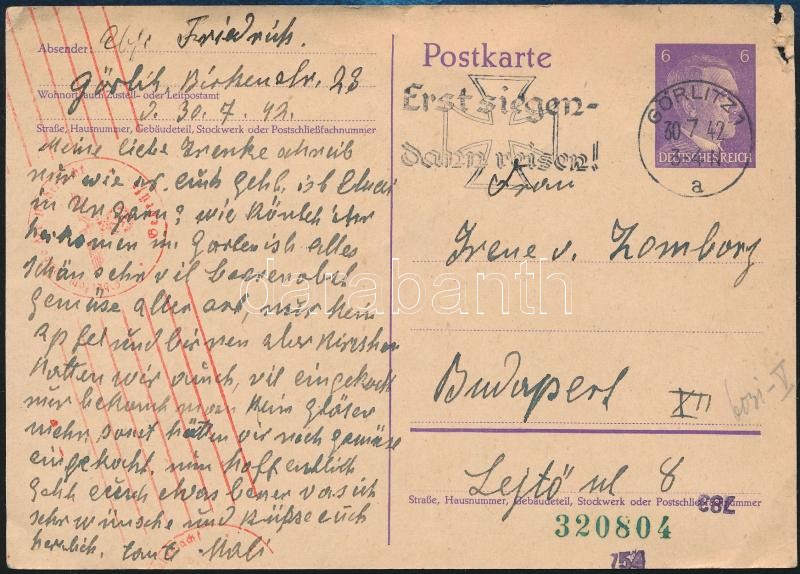 Absender: Friedrich.
Görlitz, Birkenstr. 23
Wohnort, auch Zustell- oder Leitpostamt
d. 30.7.42.
Straße, Hausnummer, Gebäudeteil, Stockwerk oder Postschließfachnummer
Meine liebe Irenke schreib
nur wie es euch geht, ist
in Ungarn? wie könnt ihr
in alles
schön sehr vil beerenobst
Gemüse aller art, nur kein
Apfel und birnen aber Kirschen
hatten wir auch, vil eingekocht
nur bekomt man kein Gläser
mehr sonst hätten wir noch gemüse
eingekocht. nun hoffendlich
geht euch etwas beser was ich
sehr wünsche und Küße euch
herzlich. tant Mali
Postkarte
6 6
DEUTSCHES REICH
Erst siegen-
dann reisen!
GÖRLITZ 1
30 7 42
a
Frau
Irene v. Zomborÿ
Budapest XII
Lejtö ul 8
Straße, Hausnummer, Gebäudeteil, Stockwerk oder Postschließfachnummer
320804
754
darabanth